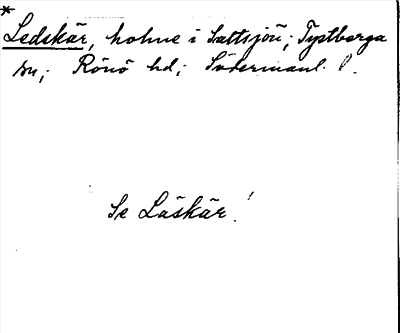 *
Ledskär, holme i Sættsjön; Tystberga
sn; Rönö hd; Södermanl. l.
Se Läskär!